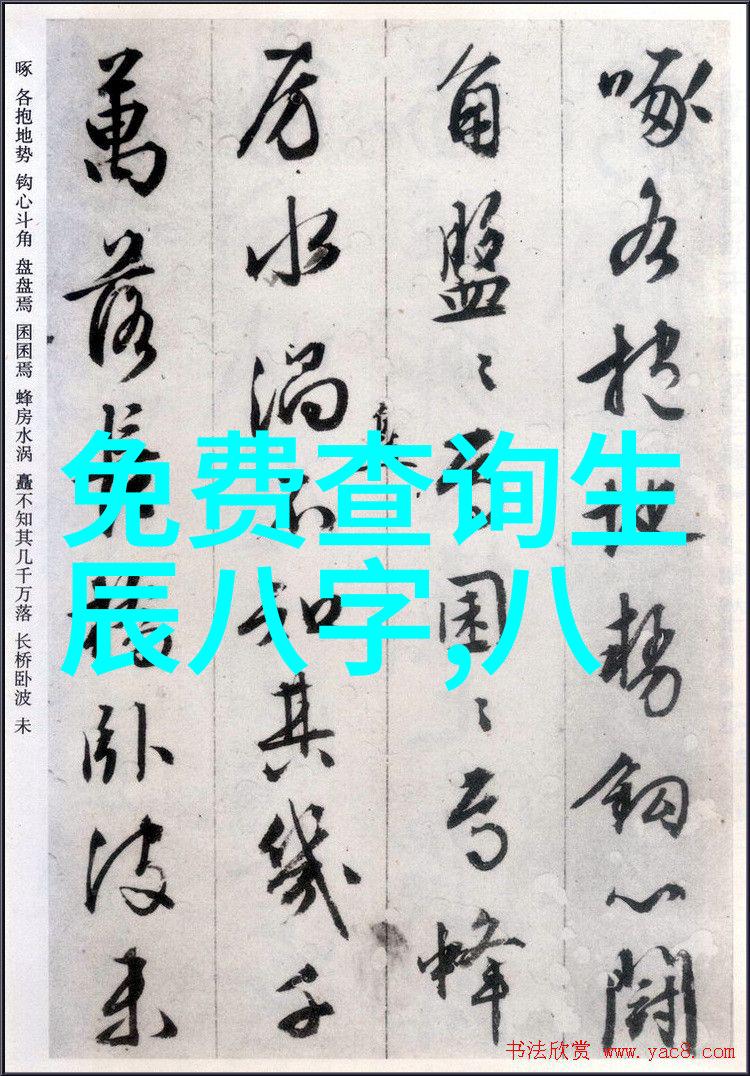 啄各抱地势钩心闘
角盤〻焉囷〻焉蜂
房水渦不知其幾千
萬落長橋卧波未
啄 各抱地势 钩心斗角 盘盘焉 囷囷焉 蜂房水涡 矗不知其几千万落 长桥卧波 未
免费查询生
辰八字,八
书法欣赏 www.yac8.com